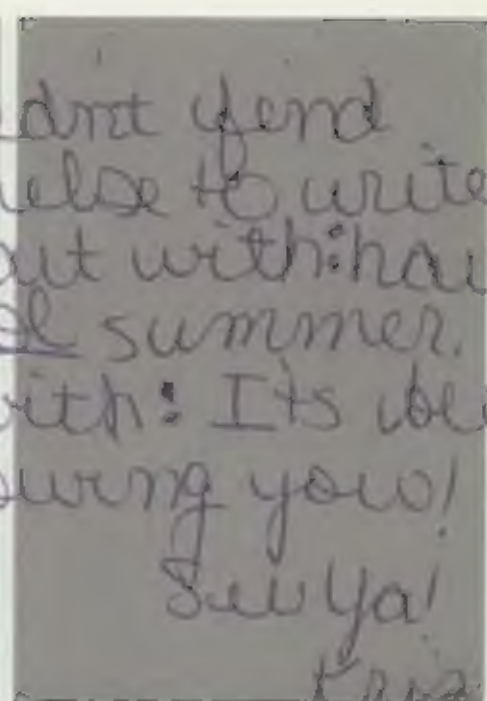 dnt find
else to write
out with: hav
ol summer.
with: Its be
owing you!
See Ya!
Kris